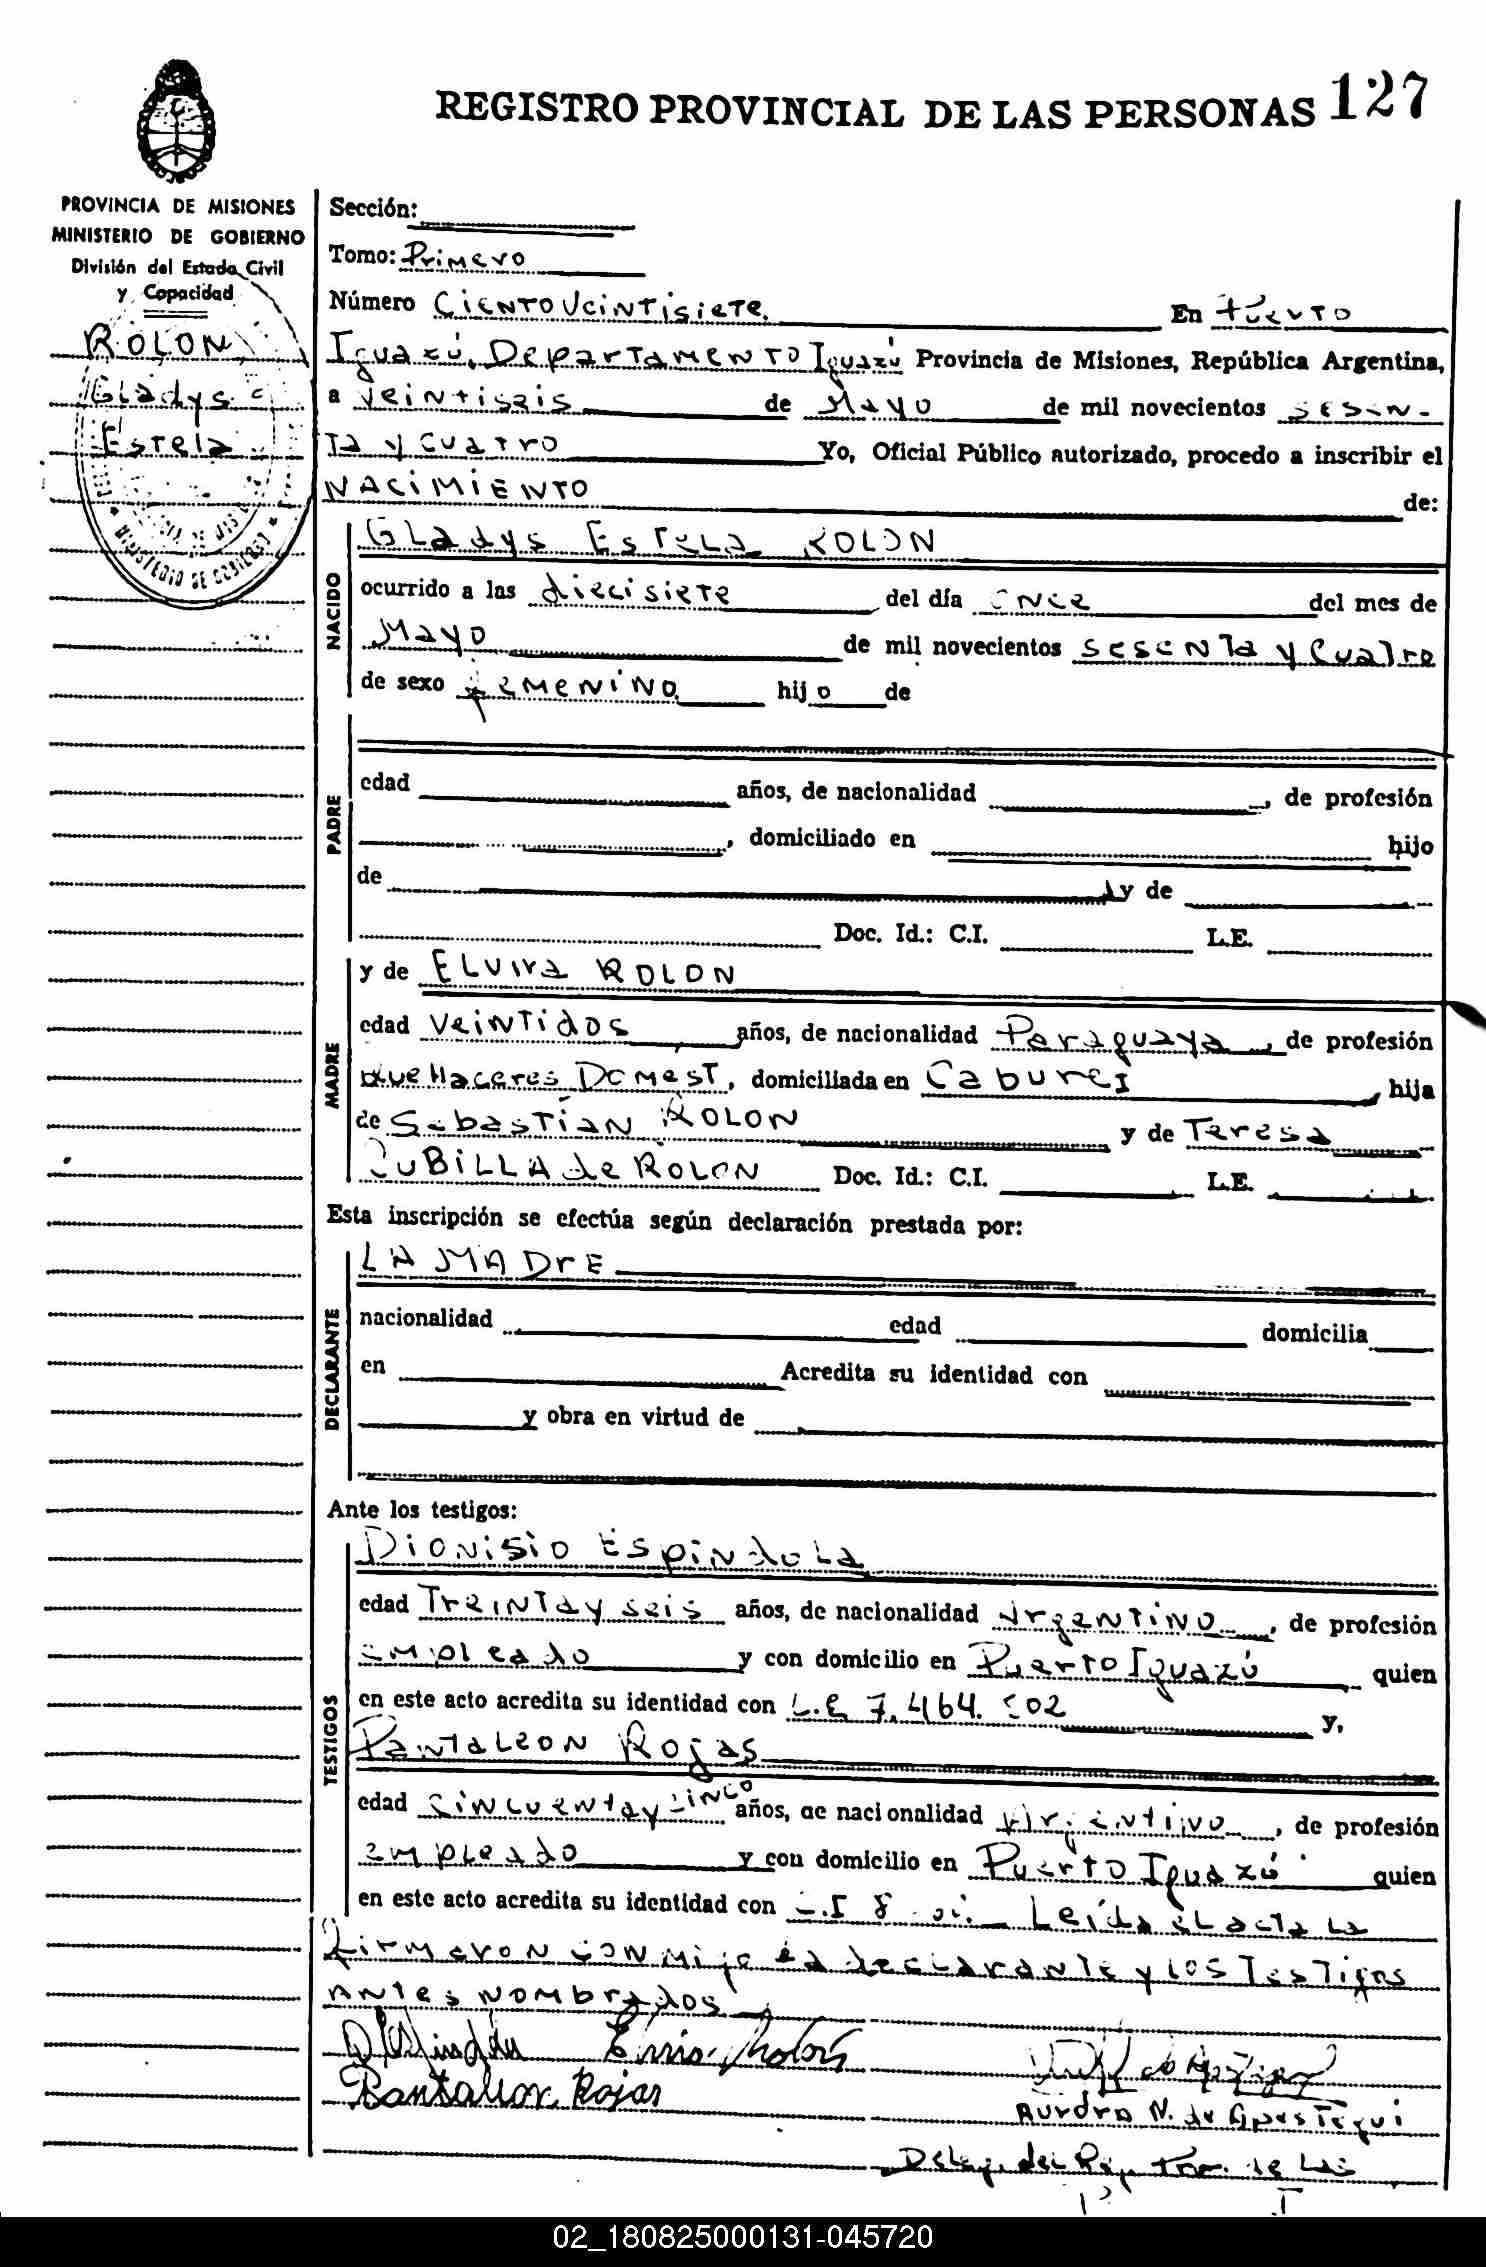 REGISTRO PROVINCIAL DE LAS PERSONAS 127
PROVINCIA DE MISIONES
MINISTERIO DE GOBIERNO
División del Estado Civil
y Capacidad
ROLON
Gladys
Estela
MINISTERIO DE GOBIERNO
Sección:
Tomo: Primero
Número Ciento Veintisiete. En Puerto
Iguazú, Departamento Iguazú Provincia de Misiones, República Argentina,
a Veintiseis de Mayo de mil novecientos sesen-
ta y cuatro Yo, Oficial Público autorizado, procedo a inscribir el
NACIMIENTO de:
NACIDO
Gladys Estela ROLON
ocurrido a las diecisiete del día once del mes de
Mayo de mil novecientos sesenta y cuatro
de sexo femenino hijo de
PADRE
edad años, de nacionalidad , de profesión
, domiciliado en hijo
de y de
Doc. Id.: C.I. L.E.
MADRE
y de Elvira ROLON
edad Veintidos años, de nacionalidad Paraguaya, de profesión
quehaceres Domest, domiciliada en Cabureí, hija
de Sebastían ROLON y de Teresa
Cubilla de ROLON Doc. Id.: C.I. L.E.
Esta inscripción se efectúa según declaración prestada por:
DECLARANTE
LA MADRE
nacionalidad edad domicilia
en Acredita su identidad con
y obra en virtud de
Ante los testigos:
TESTIGOS
Dionisio Espindola
edad Treinta y seis años, de nacionalidad argentino, de profesión
empleado y con domicilio en Puerto Iguazú quien
en este acto acredita su identidad con L.E 7.464. y,
Pantaleon Rojas
edad cincuenta y cinco años, de nacionalidad Argentino, de profesión
empleado y con domicilio en Puerto Iguazú quien
en este acto acredita su identidad con Leída el acta la
firmaron conmigo la declarante y los Testigos
antes nombrados
Rolón
Pantalion Rojas
Aurora N. de Apestegui
Deleg. del Reg. Prov. de Las
02_180825000131-045720